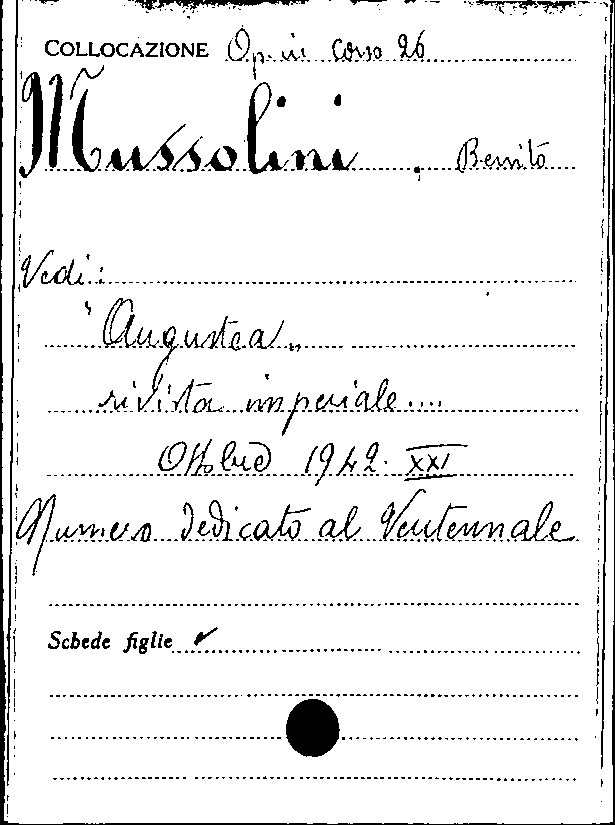 COLLOCAZIONE Op. in corso 26
Mussolini, Benito
Vedi:
"Augustea„
rivista imperiale....
Ottobre 1942. XXI
Numero dedicato al Ventennale
Schede figlie ✓